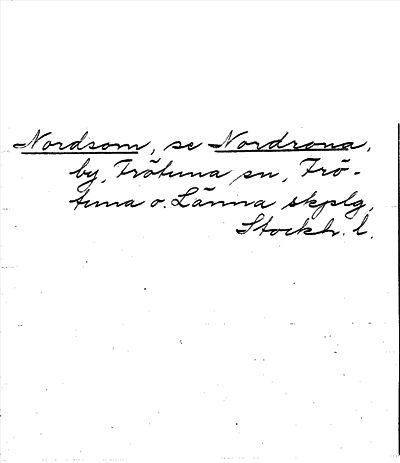 Nordsom, se Nordrona,
by, Frötuna sn, Frö-
tuna o. Länna skplg,
Stockh. l.